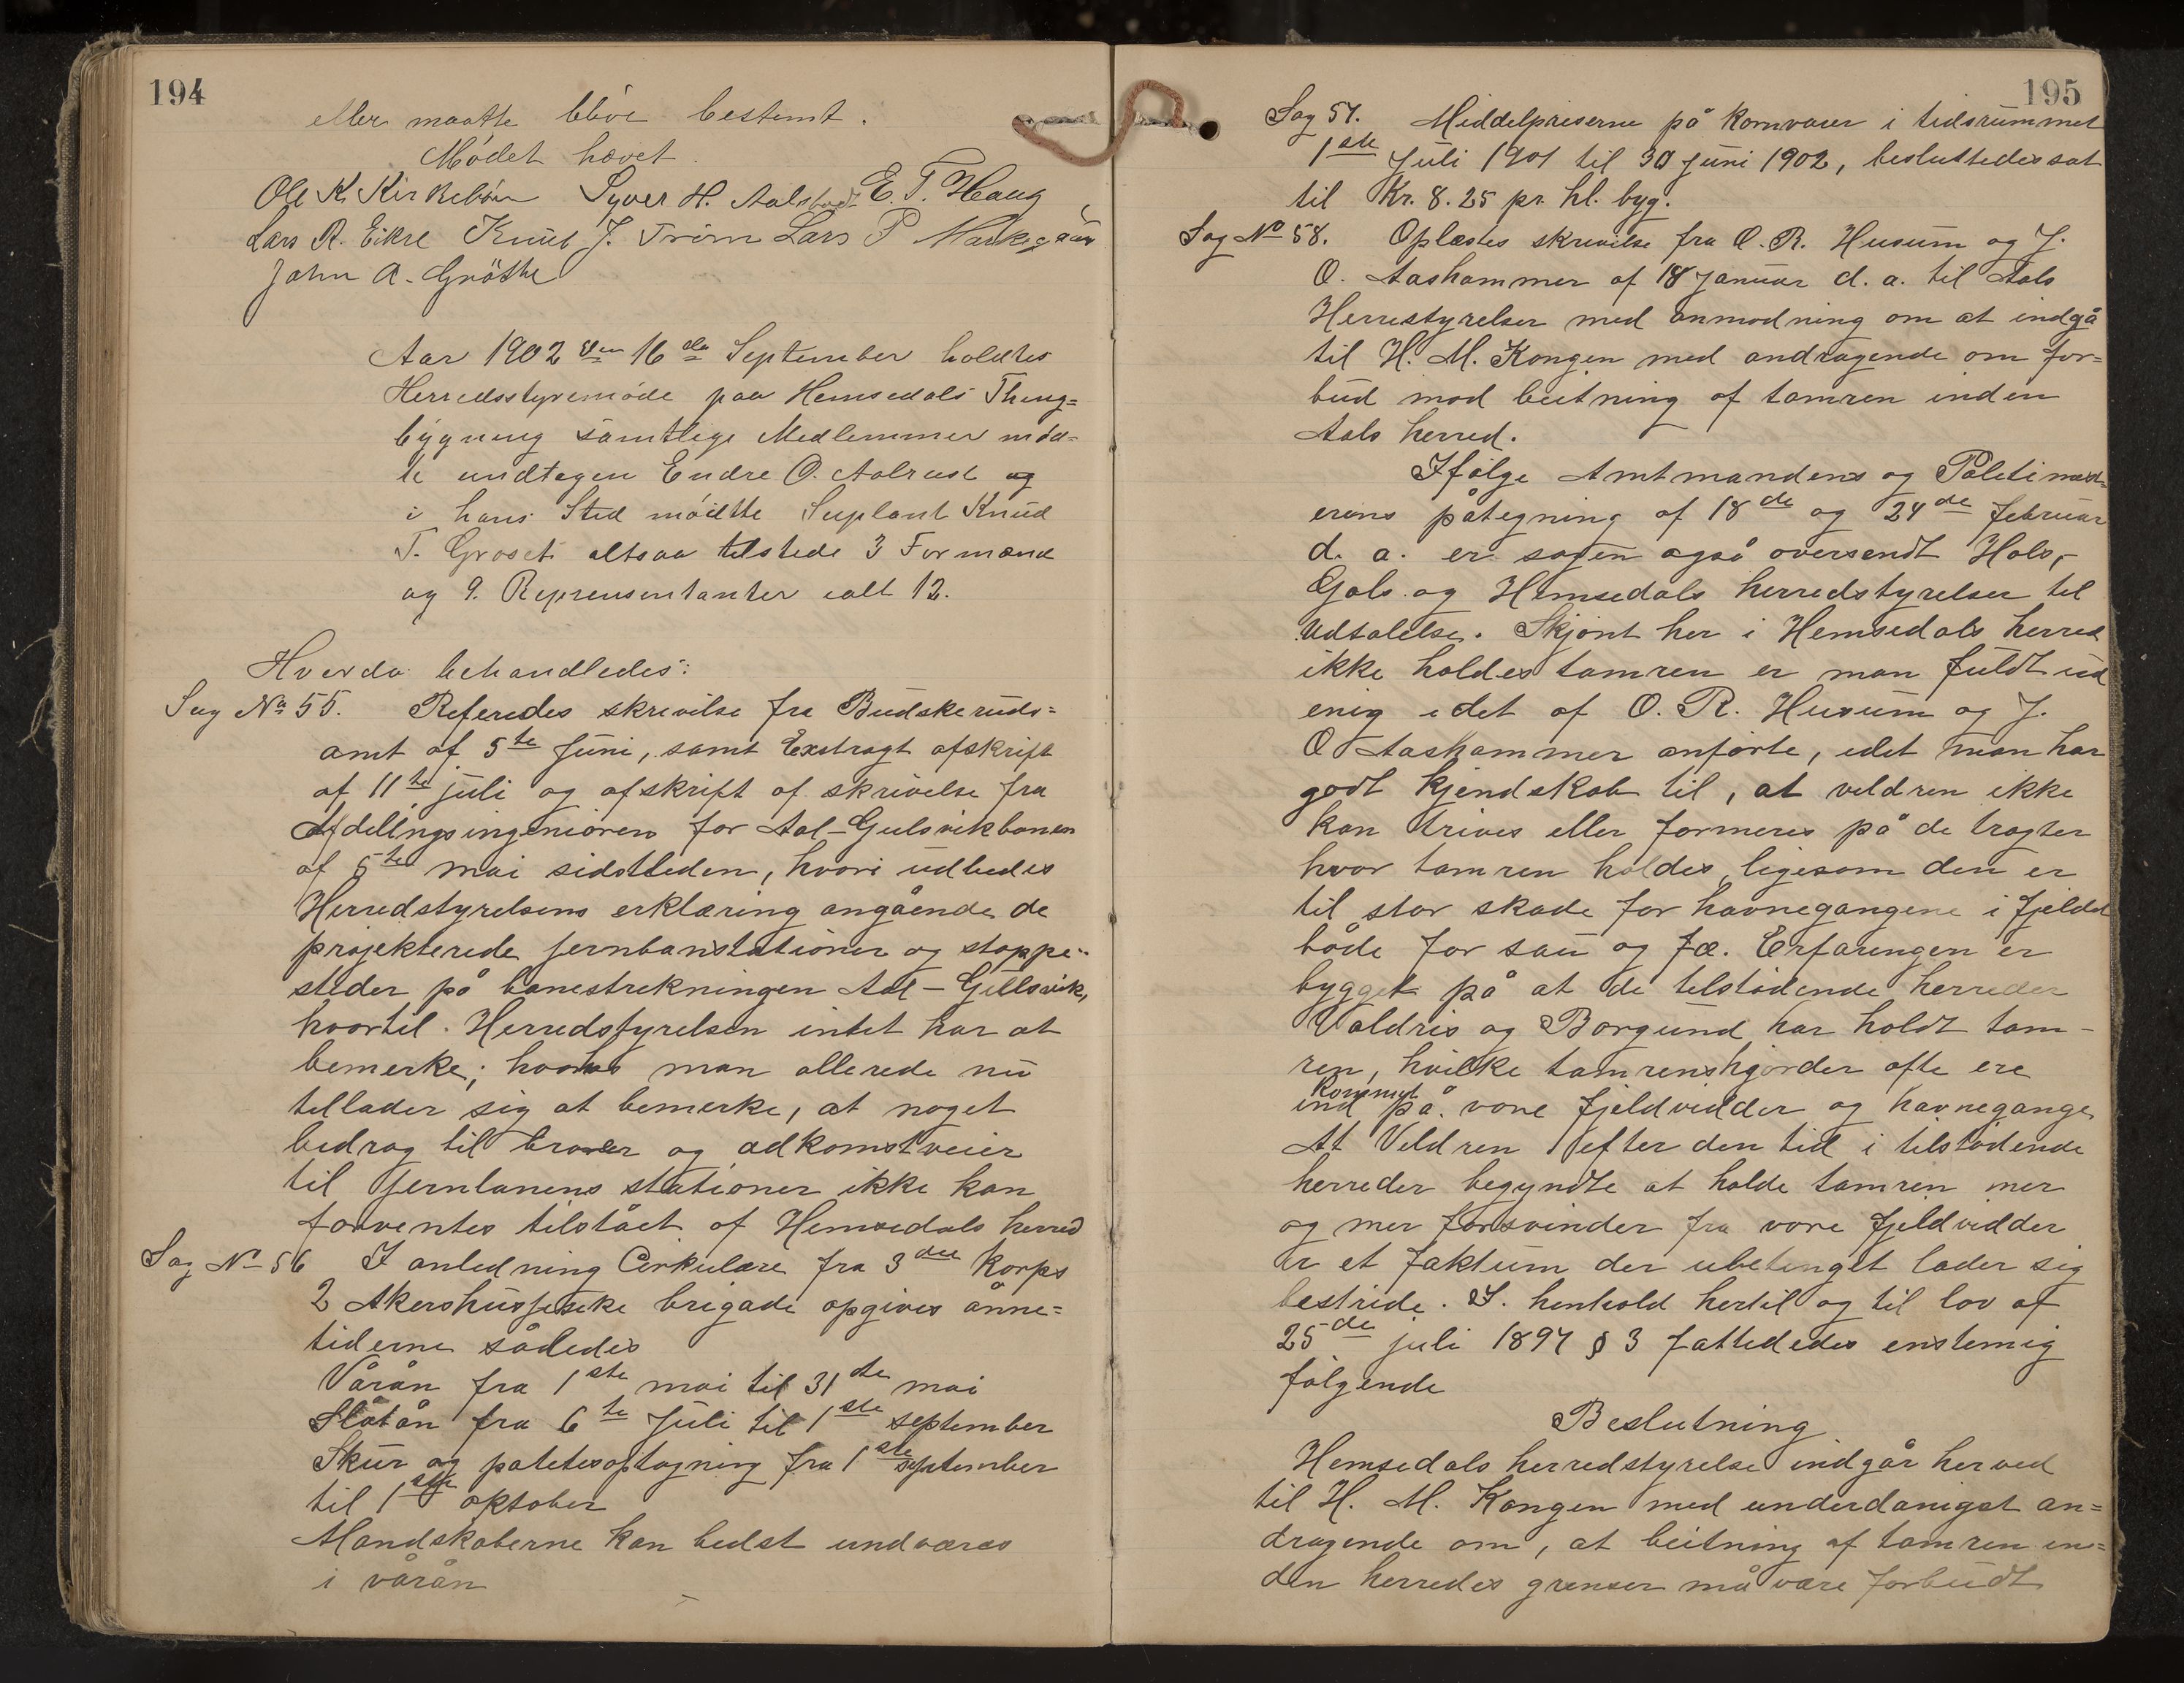 194
eller maatte blive bestemt.
Mødet hævet.
Ole K. Kirkebøen Syver H. Aalstveit E. T. Haug
Lars R. Eikre Knut J. Trøim Lars P Markegård
John A. Grøthe
Aar 1902 den 16de September holdtes
Herredsstyremøde paa Hemsedals Thing=
bygning samtlige Medlemmer mød=
te undtagen Endre O. Aalrust og
i hans Sted møtte Suplant Knud
T. Groset altsaa tilstede 3 Formænd
og 9. Reprensentanter ialt 12.
Hverda behandledes:
Sag No 55. Referedes skrivelse fra Buskeruds=
amt af 5te Juni, samt Exstragt afskrift
af 11te juli og afskrift af skrivelse fra
Afdelingsingeniøren for Aal-Gulsvikbanen
af 5te mai sidstleden, hvori udbedes
Herredstyrelsens erklæring angående de
projekterede jernbanstationer og stoppe=
steder på banestrekningen Aal-Gulsvik,
hvortil Herredstyrelsen intet har at
bemerke; hvorhos man allerede nu
tellader sig at bemerke, at noget
bedrag til broer og adkomstveier
til jernbanens stationer ikke kan
forventes tilstået af Hemsedals herred
Sag No 56 I anledning Cirkulære fra 3die Korps
2 Akershusjesike brigade opgives ånne=
tiderne således
Vårån fra 1ste mai til 31te mai
Slåtån fra 6te Juli til 1ste september
Skur og potetesoptagning fra 1ste september
til 1ste oktober
Mandskaberne kan bedst undværes
i vårån
195
Sag 57. Middelpriserne på kornvarer i tidsrummet
1ste Juli 1901 til 30 juni 1902, besluttedes sat
til Kr. 8.25 pr. hl. byg.
Sag No 58. Oplæstes skrivilse fra O. R. Husum og J.
O. Aashammer af 18 januar d. a. til Aals
Herrestyrelser med anmodning om at indgå
til H. M. Kongen med andragende om for=
bud mod beitning af tamren inden
Aals herred.
Ifølge Amtmandens og Politimest=
erens påtegning af 18de og 24de februar
d. a. er sagen også oversendt Hols,-
Gols og Hemsedals herredstyrelser til
Udtalelse. Skjønt her i Hemsedals herred
ikke holdes tamren er man fuldt ud
enig i det af O. R. Husum og J.
O Aashammer anførte, idet man har
godt kjendskab til, at vildren ikke
kan trives eller formeres på de tragter
hvor tamren holdes, ligesom den er
til stor skade for havnegangene i fjeldet
både for sau og fæ. Erfaringen er
bygget på at de tilstødende herreder
Valdris og Borgund har holdt tam-
ren, hvilke tamrenshjorder ofte ere
kommet
ind på vore fjeldvidder og havnegange
At Vildren efter den tid i tilstødende
herreder begyndte at holde tamren mer
og mer forsvinder fra vore fjeldvidder
er et faktum der ubetinget lader sig
bestride. I. henhold hertil og til lov af
25de juli 1897 § 3 fattededes enstemig
følgende
Beslutning
Hemsedals herredstyrelse indgår herved
til H. M. Kongen med underdanigst an=
dragende om, at beitning af tamren in=
den herredes grenser må være forbudt